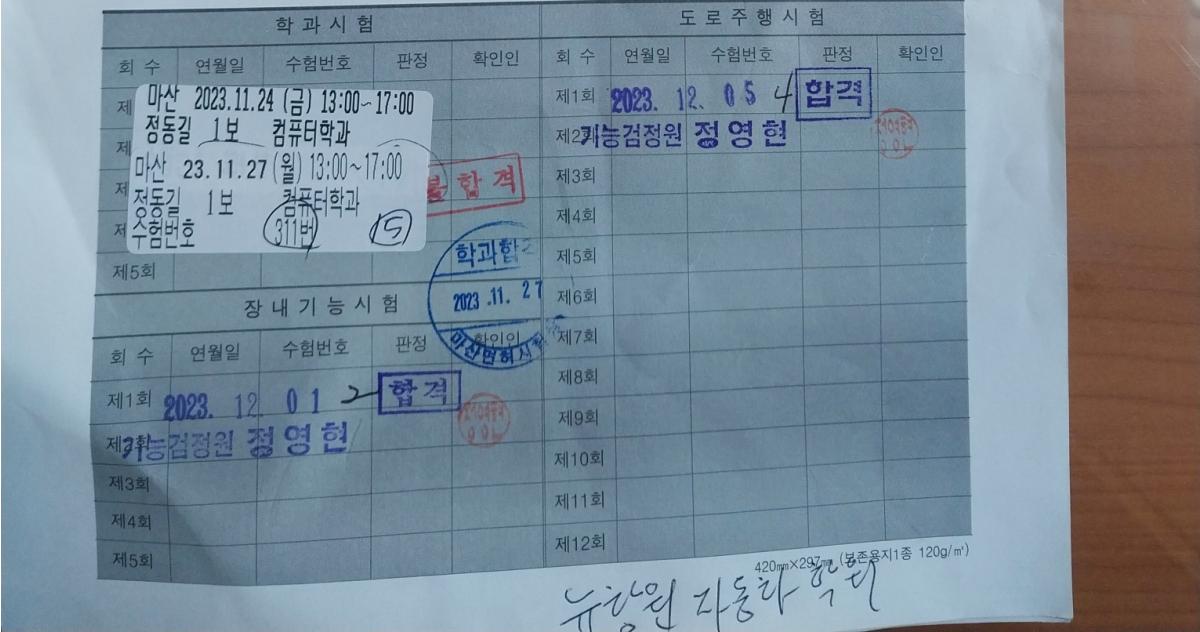 학과시험
회 수 연월일 수험번호 판정 확인인
마산 2023.11.24 (금) 13:00~17:00
정동길 1보 컴퓨터학과
마산 23.11.27 (월) 13:00~17:00
정동길 1보 컴퓨터학과
수험번호 311번 15
불합격
제5회
학과합격
2023.11.27
장내기능시험
회 수 연월일 수험번호 판정 확인인
제1회 2023. 12. 01 2 합격
제2회 기능검정원 정영현
제3회
제4회
제5회
도로주행시험
회 수 연월일 수험번호 판정 확인인
제1회 2023. 12. 05 4 합격
제2회 기능검정원 정영현
제3회
제4회
제5회
제6회
제7회
제8회
제9회
제10회
제11회
제12회
420㎜×297㎜ (보존용지1종 120g/㎡)
뉴창원 자동차 학원